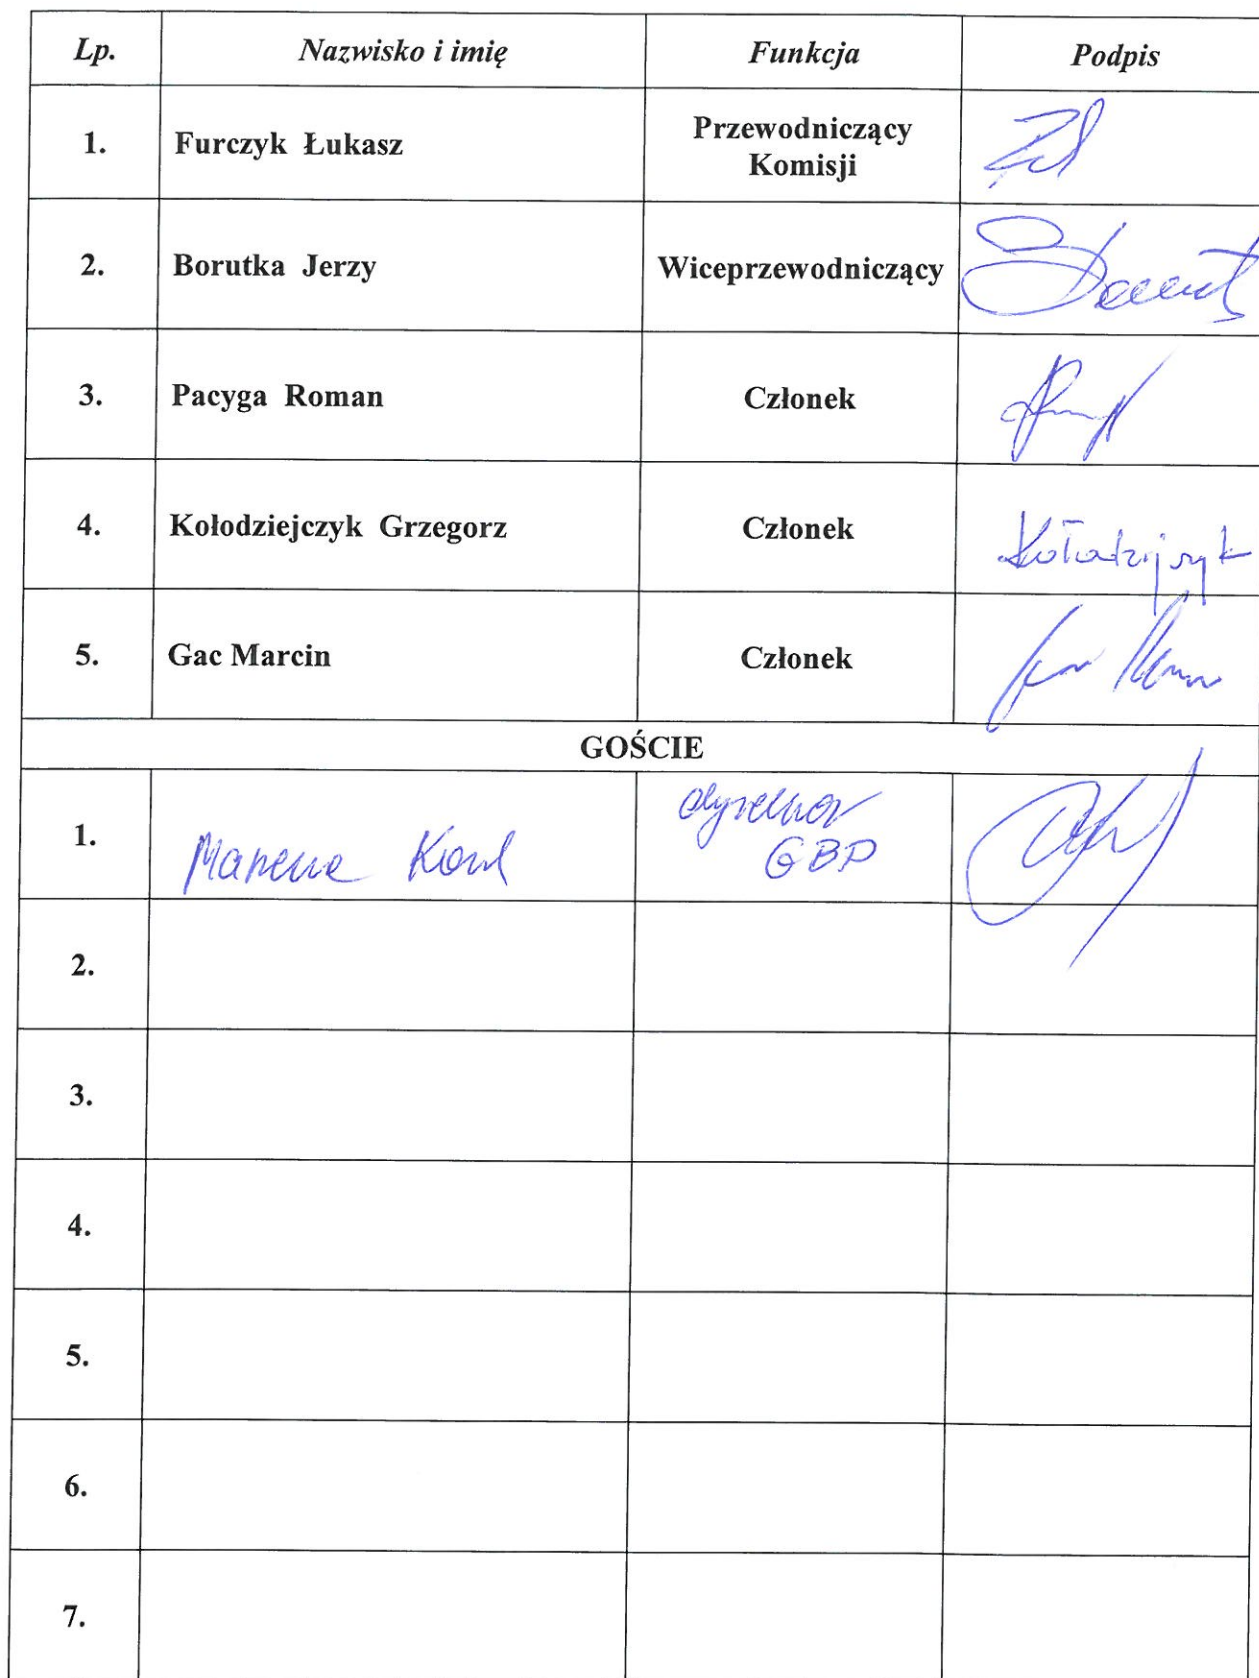 Lp. Nazwisko i imię Funkcja Podpis
1. Furczyk Łukasz Przewodniczący
Komisji
2. Borutka Jerzy Wiceprzewodniczący
3. Pacyga Roman Członek
4. Kołodziejczyk Grzegorz Członek
5. Gac Marcin Członek
GOŚCIE
1. dyrektor
GBP
2.
3.
4.
5.
6.
7.